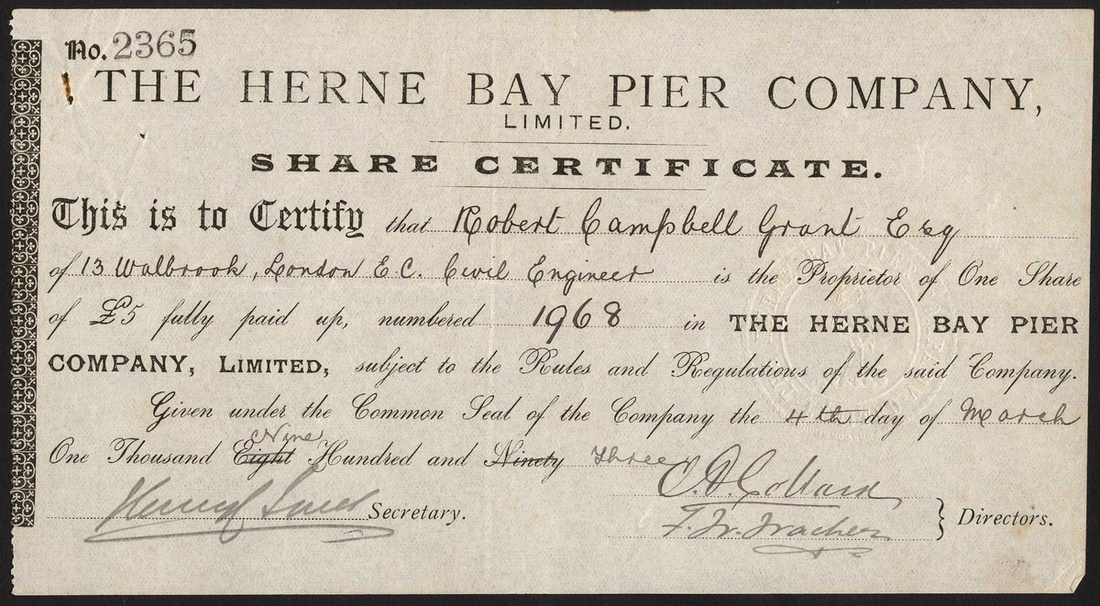 No. 2365
THE HERNE BAY PIER COMPANY,
LIMITED.
SHARE CERTIFICATE.
This is to Certify that Robert Campbell Grant Esq
of 13 Walbrook, London E.C. Civil Engineer is the Proprietor of One Share
of £5 fully paid up, numbered 1968 in THE HERNE BAY PIER
COMPANY, LIMITED, subject to the Rules and Regulations of the said Company.
Given under the Common Seal of the Company the 4th day of March
Nine
One Thousand Eight Hundred and Ninety three
Secretary.
Directors.